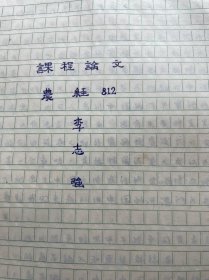 課程論文
農經 812
李
志
強